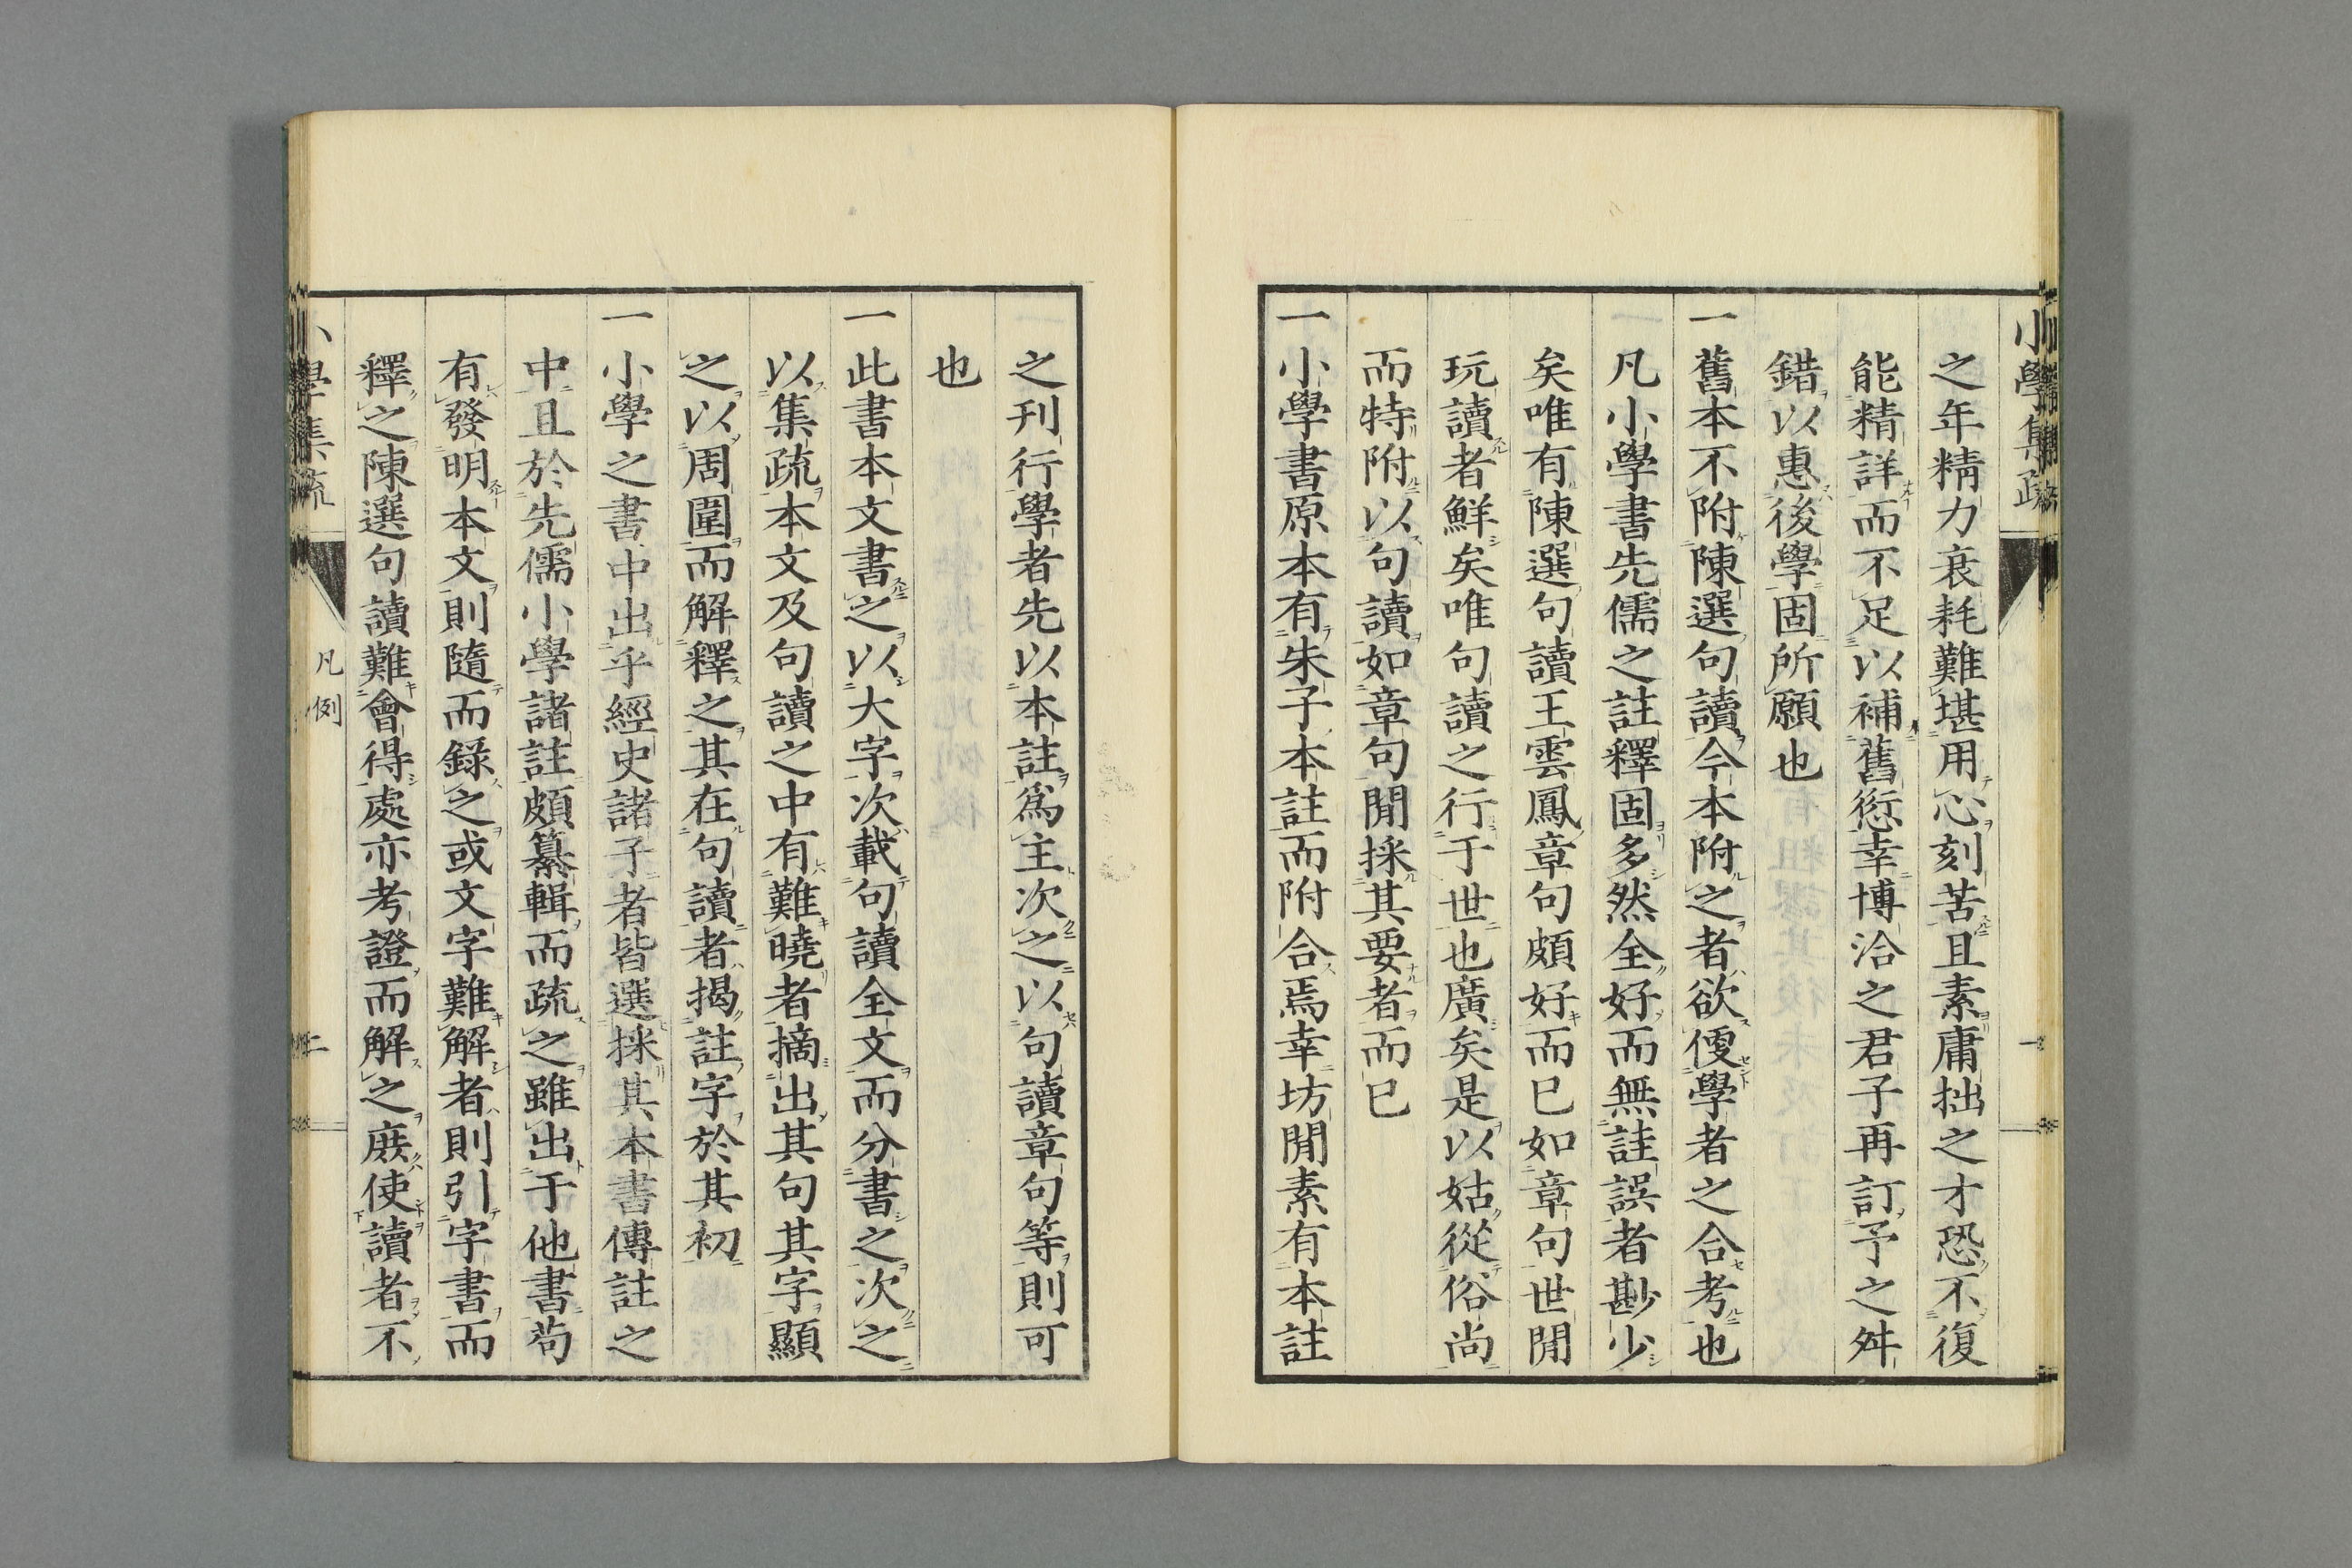 小學集疏
一
之年精力衰耗難堪用心刻苦且素庸拙之才恐不復
能精詳而不足以補舊愆幸博洽之君子再訂予之舛
錯以惠後學固所願也
一舊本不附陳選句讀今本附之者欲便學者之合考也
凡小學書先儒之註釋固多然全好而無註誤者尠少
矣唯有陳選句讀王雲鳳章句頗好而已如章句世閒
玩讀者鮮矣唯句讀之行于世也廣矣是以姑從俗尚
而特附以句讀如章句閒採其要者而已
一小學書原本有朱子本註而附合焉幸坊閒素有本註
之刊行學者先以本註爲主次之以句讀章句等則可
也
一此書本文書之以大字次載句讀全文而分書之次之
以集疏本文及句讀之中有難曉者摘出其句其字顯
之以周圍而解釋之其在句讀者揭註字於其初
一小學之書中出乎經史諸子者皆選採其本書傳註之
中且於先儒小學諸註頗纂輯而疏之雖出于他書苟
有發明本文則隨而録之或文字難解者則引字書而
釋之陳選句讀難會得處亦考證而解之庶使讀者不
小學集疏
凡例
二